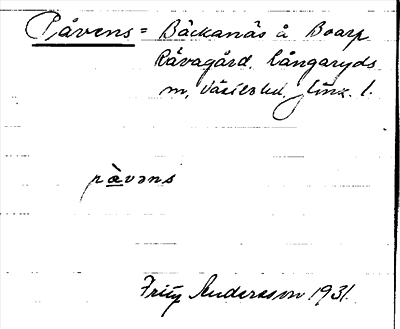 Påvens = Bäckanäs å Boarp
Råvagård. Långaryds
m, Västbo hd. Jönk. l.
pàvəns
Fritz Andersson 1931.